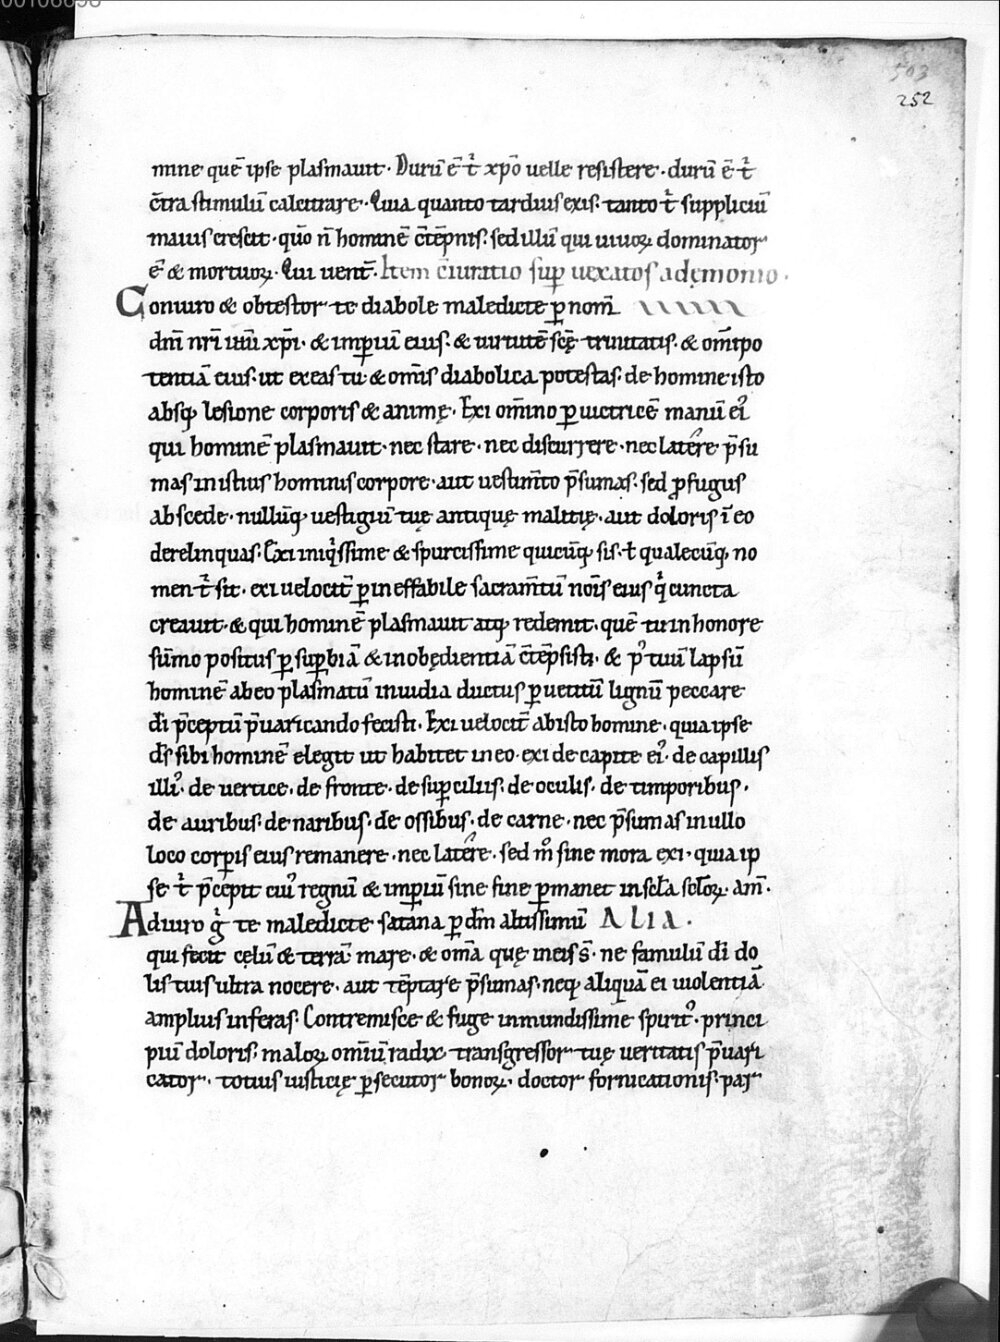 503
252
mine quē ipse plasmauit · Durū ē t̄ xp̄o uelle resistere · durū ē t̄
c̄tra stimulū calcitrare · Quia quanto tardius exis · tanto t̄ suppliciū
maius crescit · quō n̄ hominē c̄tēpnis · sed illū qui uiuoꝝ dominator
ē & mortuoꝝ · Qui uent̄ · Item c̄iuratio suꝑ uexatos a dęmonio ·
Coniuro & obtestor te diabole maledicte ꝑ nom̄
dn̄i nr̄i ihū xp̄i · & imꝑiū eius · & uirtutē scę̄ trinitatis · & om̄ipo
tentiā eius · ut exeas tu & om̄is diabolica potestas · de homine isto
absqꝫ lesione corporis & animę · Exi om̄ino ꝑ uictricē manū eiꝰ
qui hominē plasmauit · nec stare · nec discurrere · nec latere p̄su
mas in istius hominis corpore · aut uestim̄to p̄sumas · sed ꝓfugus
abscede · nullūqꝫ uestigiū tuę antiquę malitię · aut doloris ī eo
derelinquas · Exi iniq̇ssime & spurcissime quicūqꝫ sis · ł qualecūqꝫ no
men t̄ sit · exi uelocit̄ ꝑ ineffabile sacram̄tū nōis eius q̇ cuncta
creauit · & qui hominē plasmauit atqꝫ redemit · quē tu in honore
sūmo positus ꝑ suꝑbiā & inobędientiā c̄tēpsisti · & pꝰ tuū lapsū
hominē ab eo plasmatū inuidia ductus ꝑ uetitū lignū peccare
dī p̄ceptū p̄uaricando fecisti · Exi uelocit̄ ab isto homine · quia ipse
ds̄ sibi hominē elegit ut habitet in eo · exi de capite eiꝰ · de capillis
illiꝰ · de uertice · de fronte · de suꝑciliis · de oculis · de timporibus ·
de auribus · de naribus · de ossibus · de carne · nec p̄sumas in ullo
loco corꝑis eius remanere · nec latere · sed m̊ sine mora exi · quia ip
se t̄ p̄cepit cuiꝰ regnū & imꝑiū sine fine ꝑmanet in scl̄a scl̄oꝝ · am̄ ·
Adiuro g̊ te maledicte satana ꝑ dm̄ altissimū ALIA ·
qui fecit cęlū & terrā · mare · & om̄a quę in eis s̄ · ne famulū dī do
lis tuis ultra nocere · aut tēptare p̄sumas · neqꝫ aliquā ei uiolentiā
amplius inferas · Contremisce & fuge inmundissime spiritꝰ · princi
piū doloris · maloꝝ om̄iū radix · transgressor tuę ueritatis p̄uari
cator · totius iusticię ꝑsecutor bonoꝝ · doctor fornicationis · par